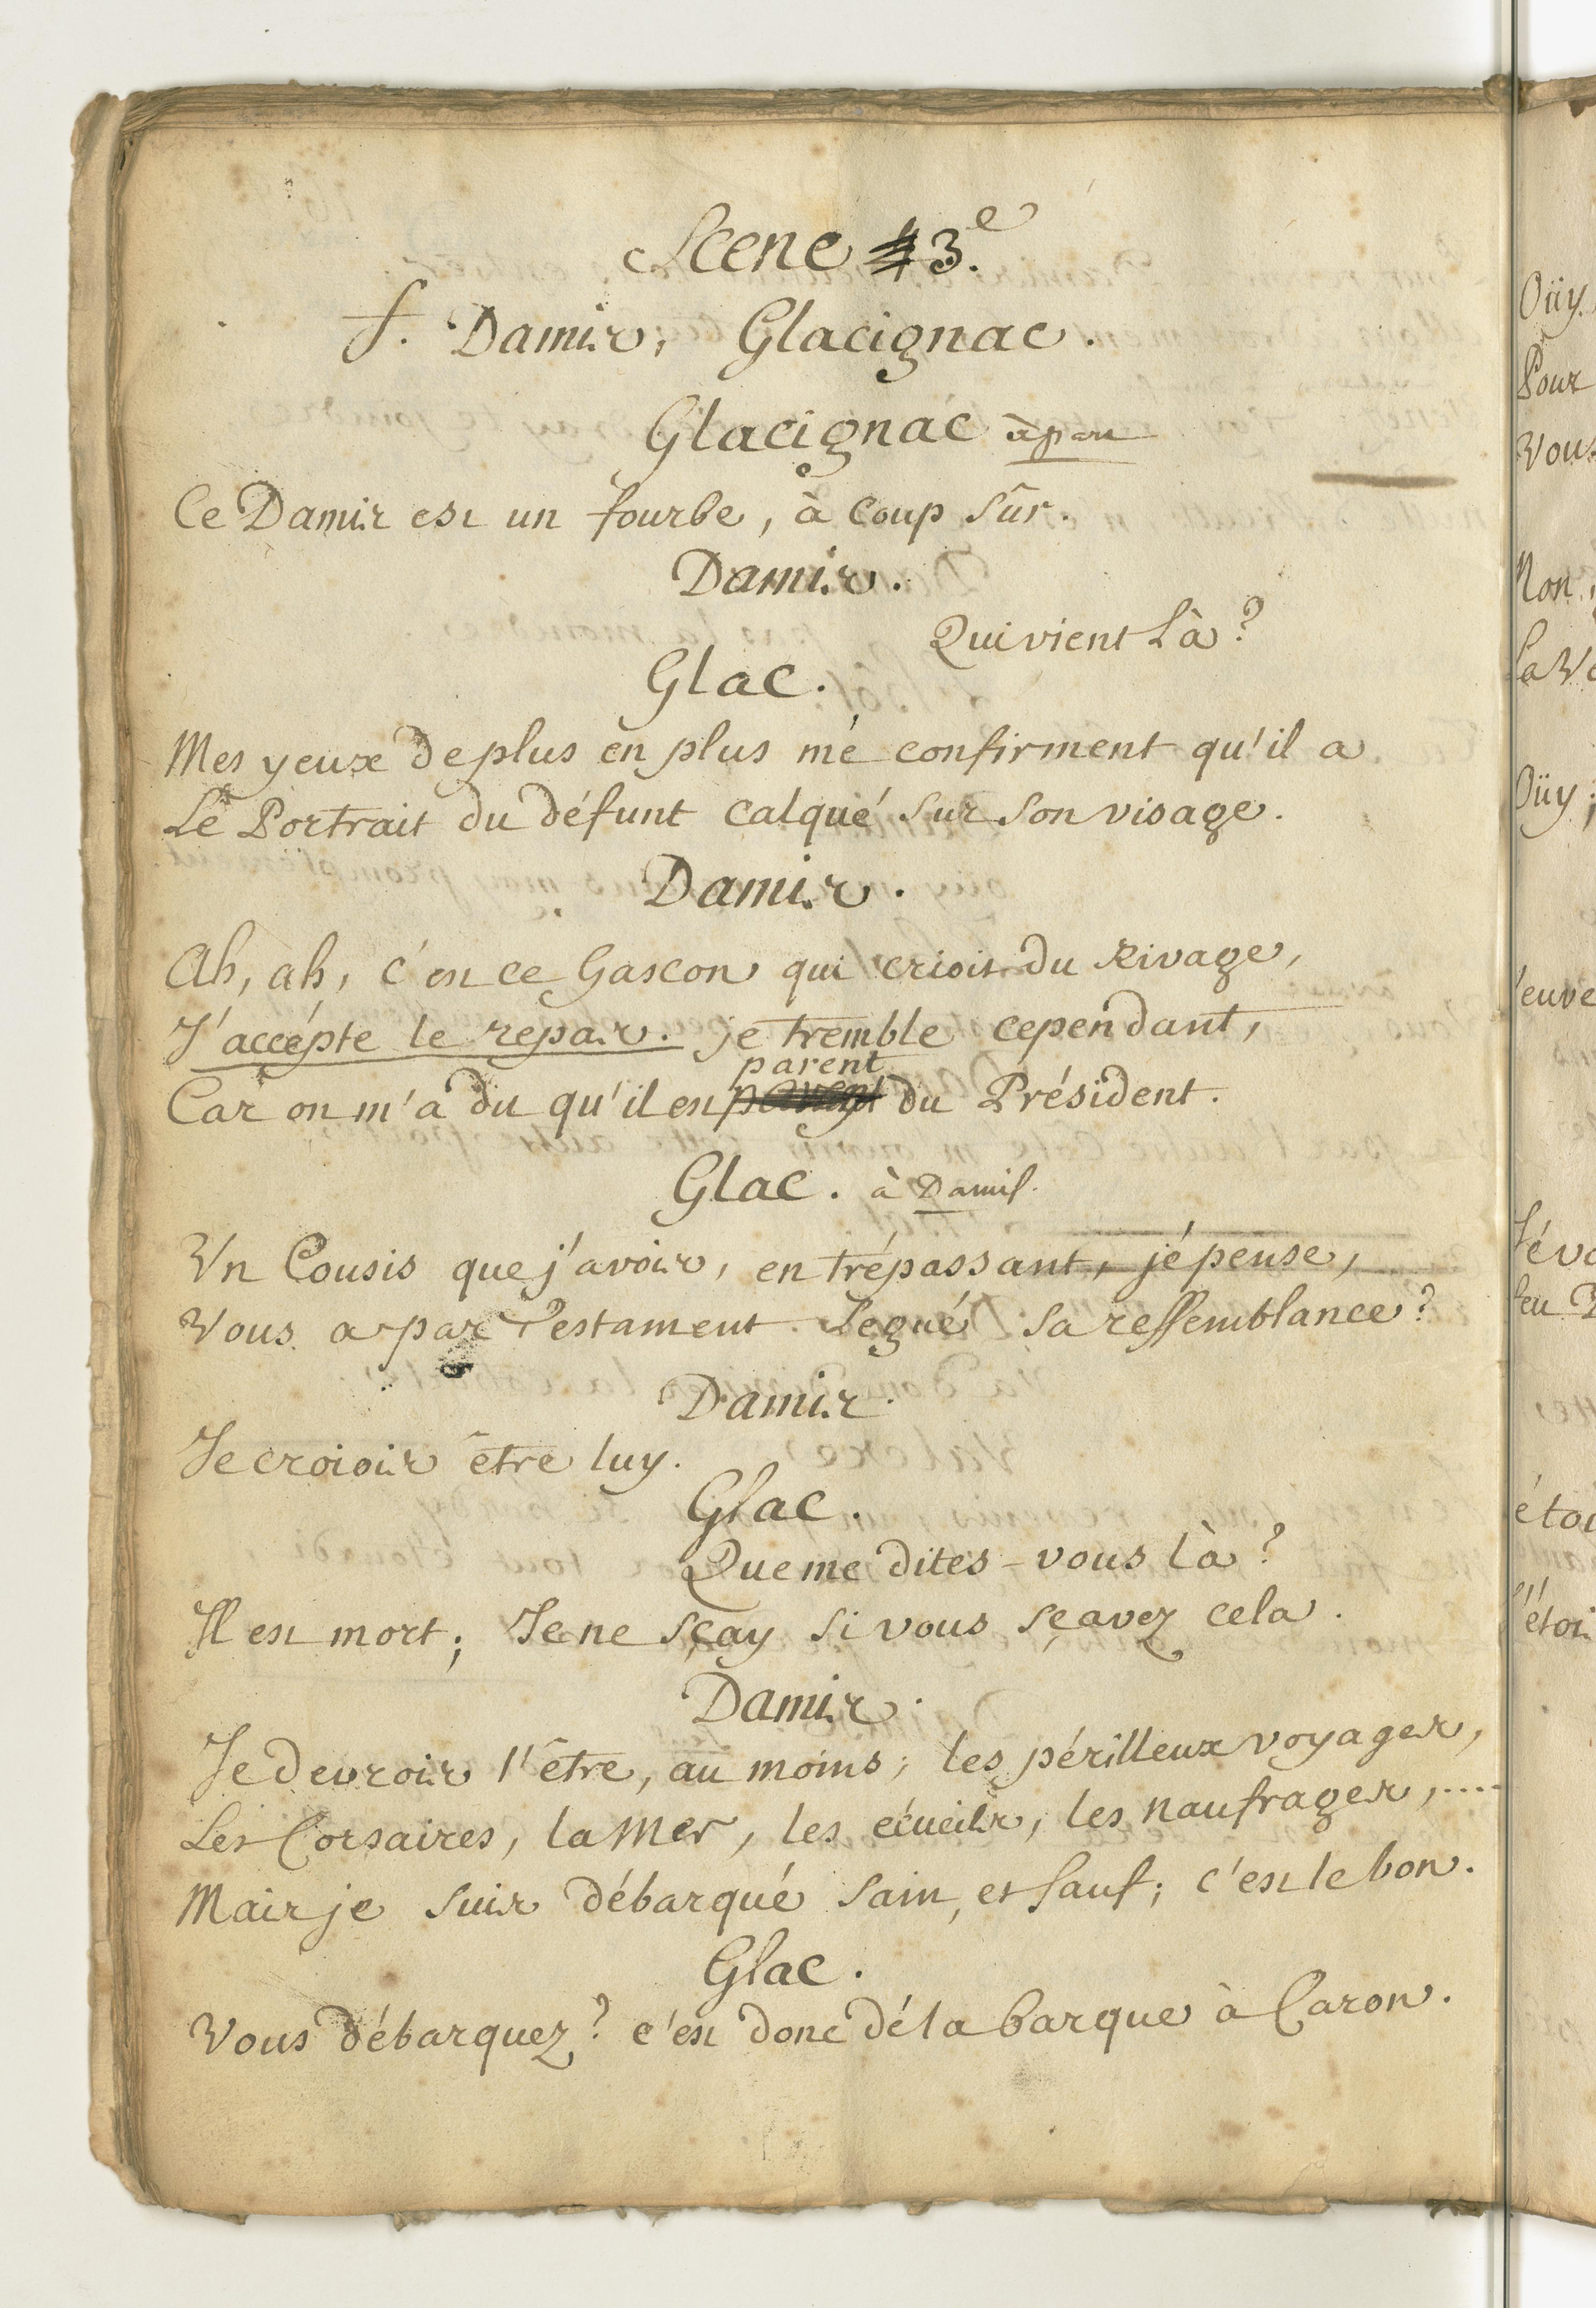 Scene 4 3.e
f. Damis, Glacignac.
Glacignac à part
Ce Damis est un fourbe, à coup sûr.
Damis.
Qui vient là?
Glac.
Mes yeux de plus en plus mé confirment qu'il a
Lé Portrait du défunt calqué sur son visage.
Damis.
Ah, ah, c'est ce Gascon qui crioit du Rivage,
J'accépte le repas. je tremble cependant,
parent
Car on m'a dit qu'il est parent du Président.
Glac. à Damis.
Un Cousis que j'avois, en trépassant, jé pense,
Vous a par Testament légué sa ressemblance?
Damis.
Je croiois être luy.
Glac.
Que me dites-vous là?
Il est mort; Je ne sçay si vous sçavez cela.
Damis.
Je devrois l'être, au moins; les périlleux voyages,
Les Corsaires, la Mer, les écueils, les naufrages,....
Mais je suis débarqué sain, et sauf; c'est le bon.
Glac.
Vous débarquez? c'est donc dé la barque à Caron.
Oüy
Pour
Vous
Non,
Oüy;